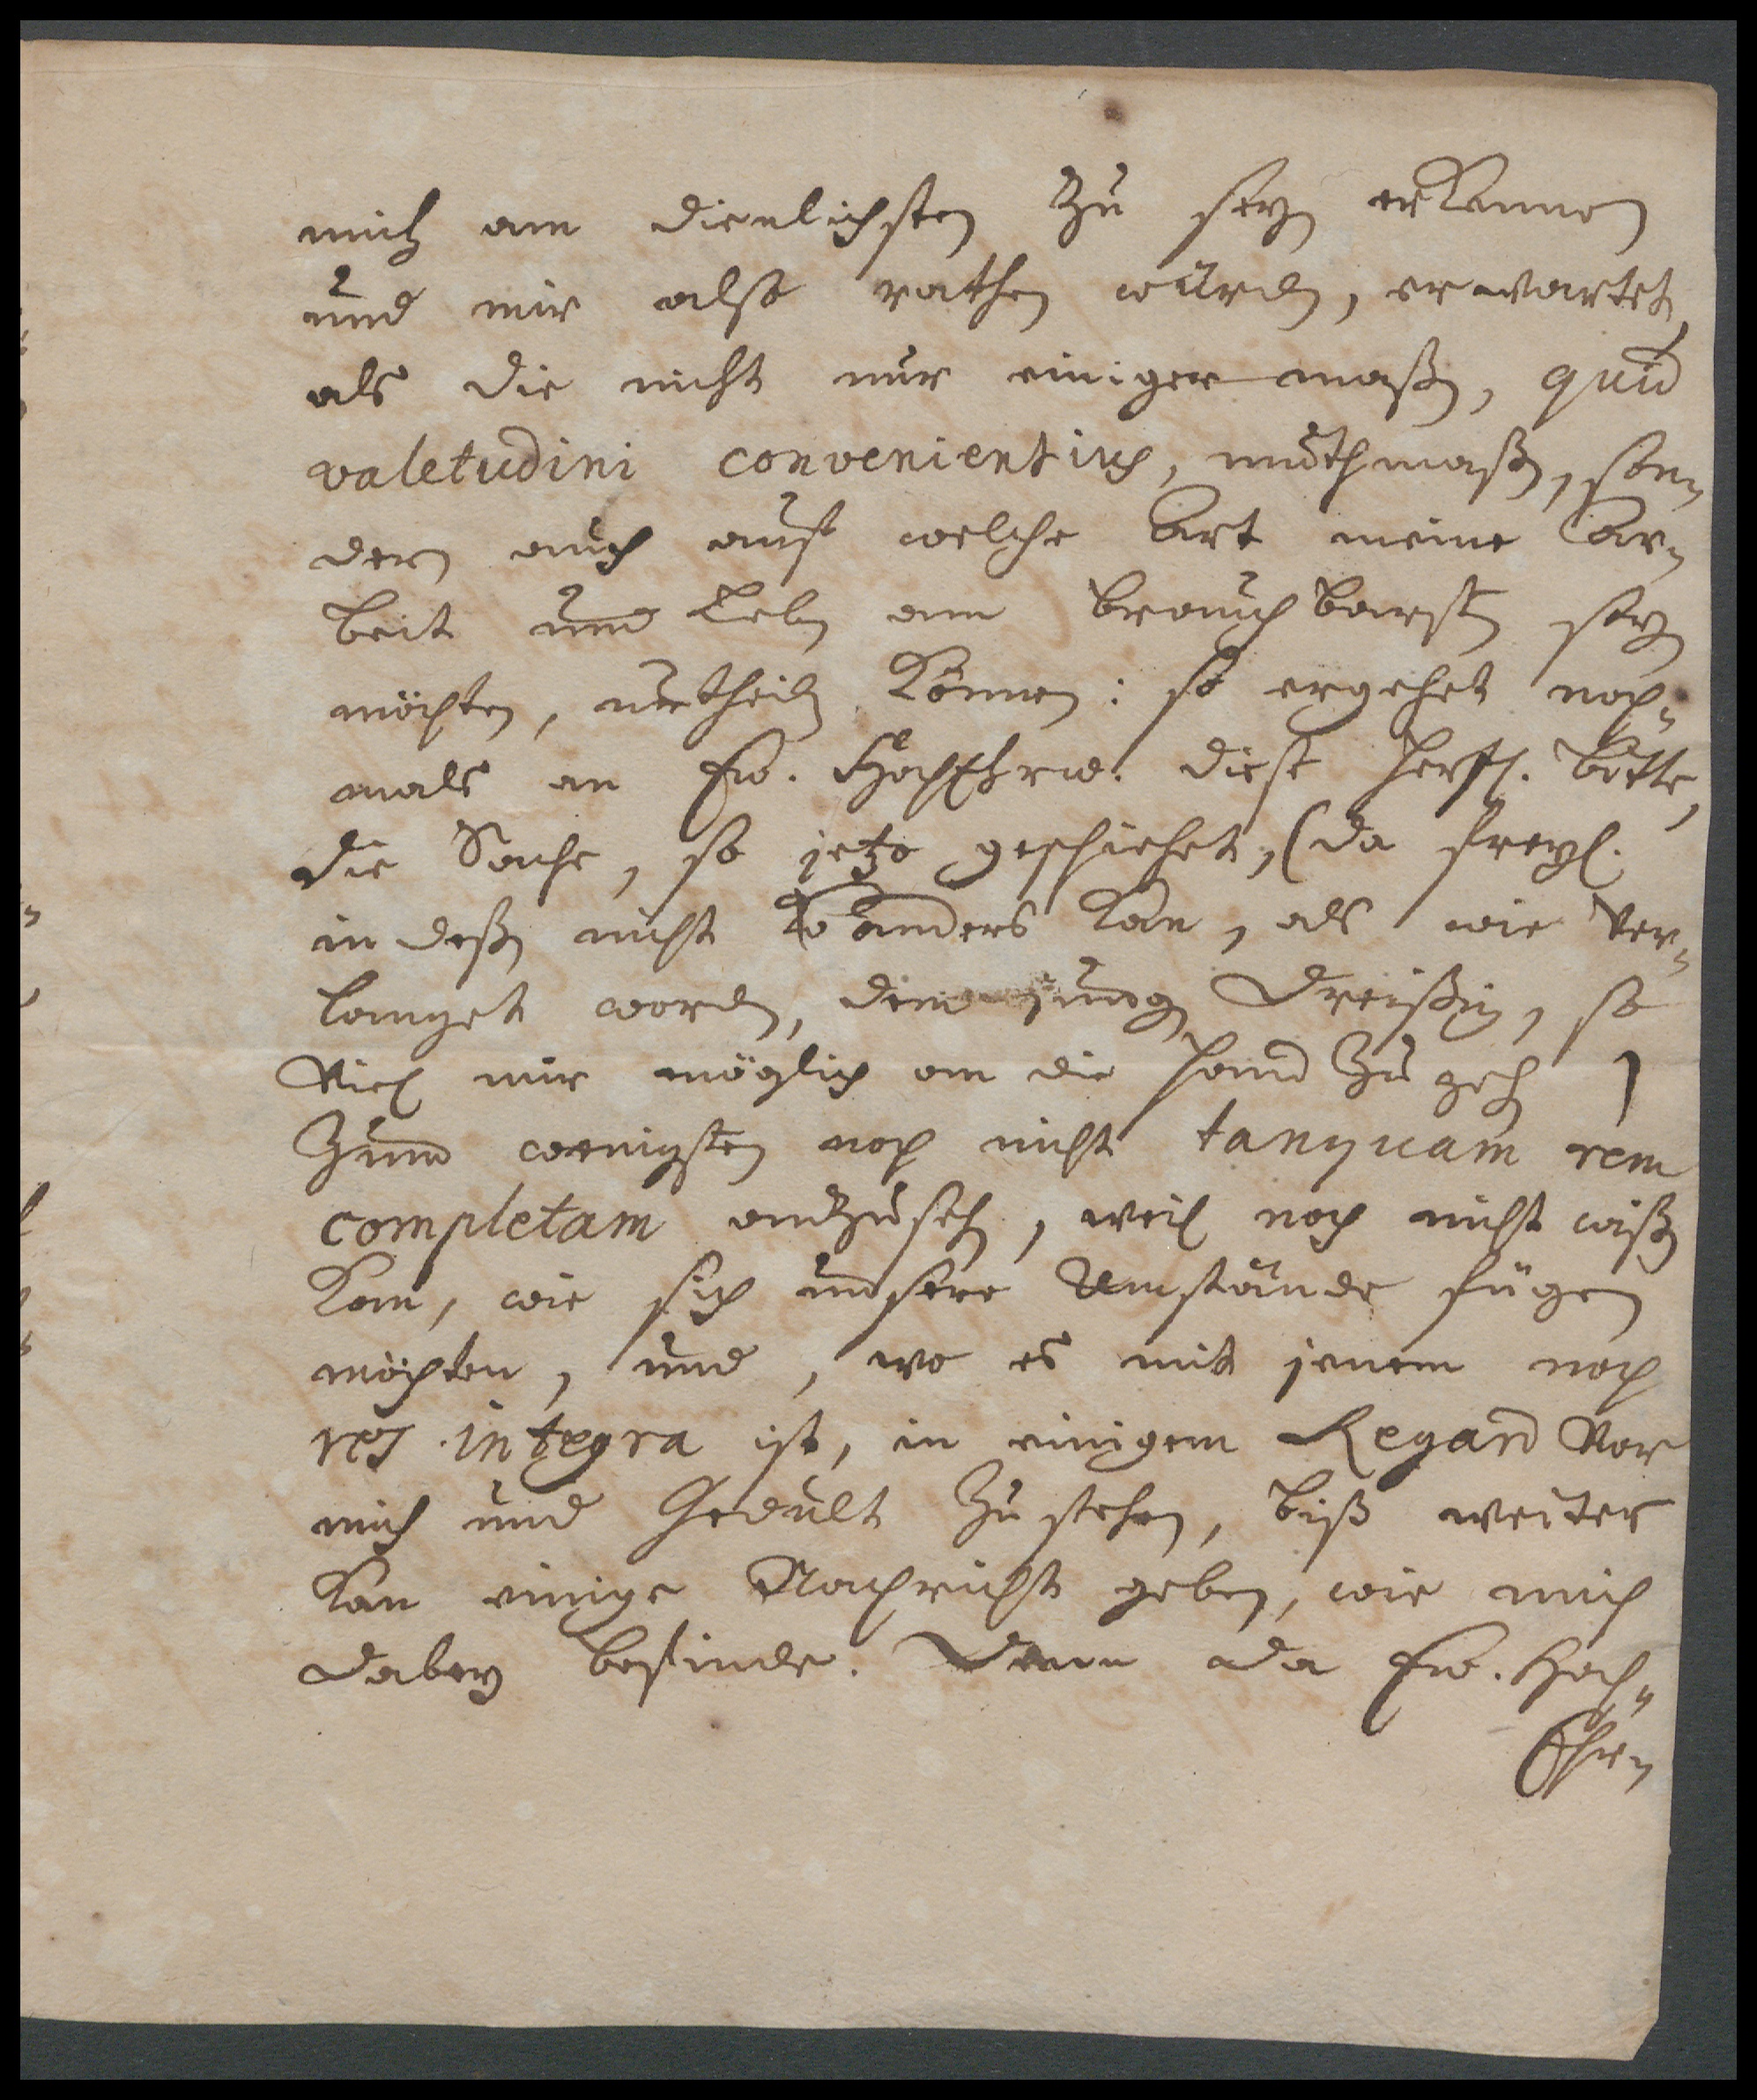 mich am dienlichsten zu seyn erkennen
und mir also rathen würden, erwartet,
als die nicht nur einiger maßen, quid
valetudini convenientius, muthmaßen, son¬
dern auch auf welche Art meine Ar¬
beit und Leben am brauchbarsten seyn
möchten, urtheilen können: so ergehet noch¬
mals an Ew. HochEhrw. diese hertzl. Bitte,
die Sache, so jetzo geschiehet, (da freyl.
in deßen nicht anders kan, als wie ver¬
langet worden, dem jungen Dreißig, so
viel mir möglich an die Hand zu gehen)
zum wenigsten noch nicht tanquam rem
completam anzusehen, weil noch nicht wißen
kan, wie sich unsere Umstände fügen
möchten, und, wo es mit jenem noch
res integra ist, in einigem Regard vor
mich und Gedult zu stehen, biß weiter
kan einige Nachricht geben, wie mich
dabey befinde. Denn da Ew. Hoch¬
Ehr¬